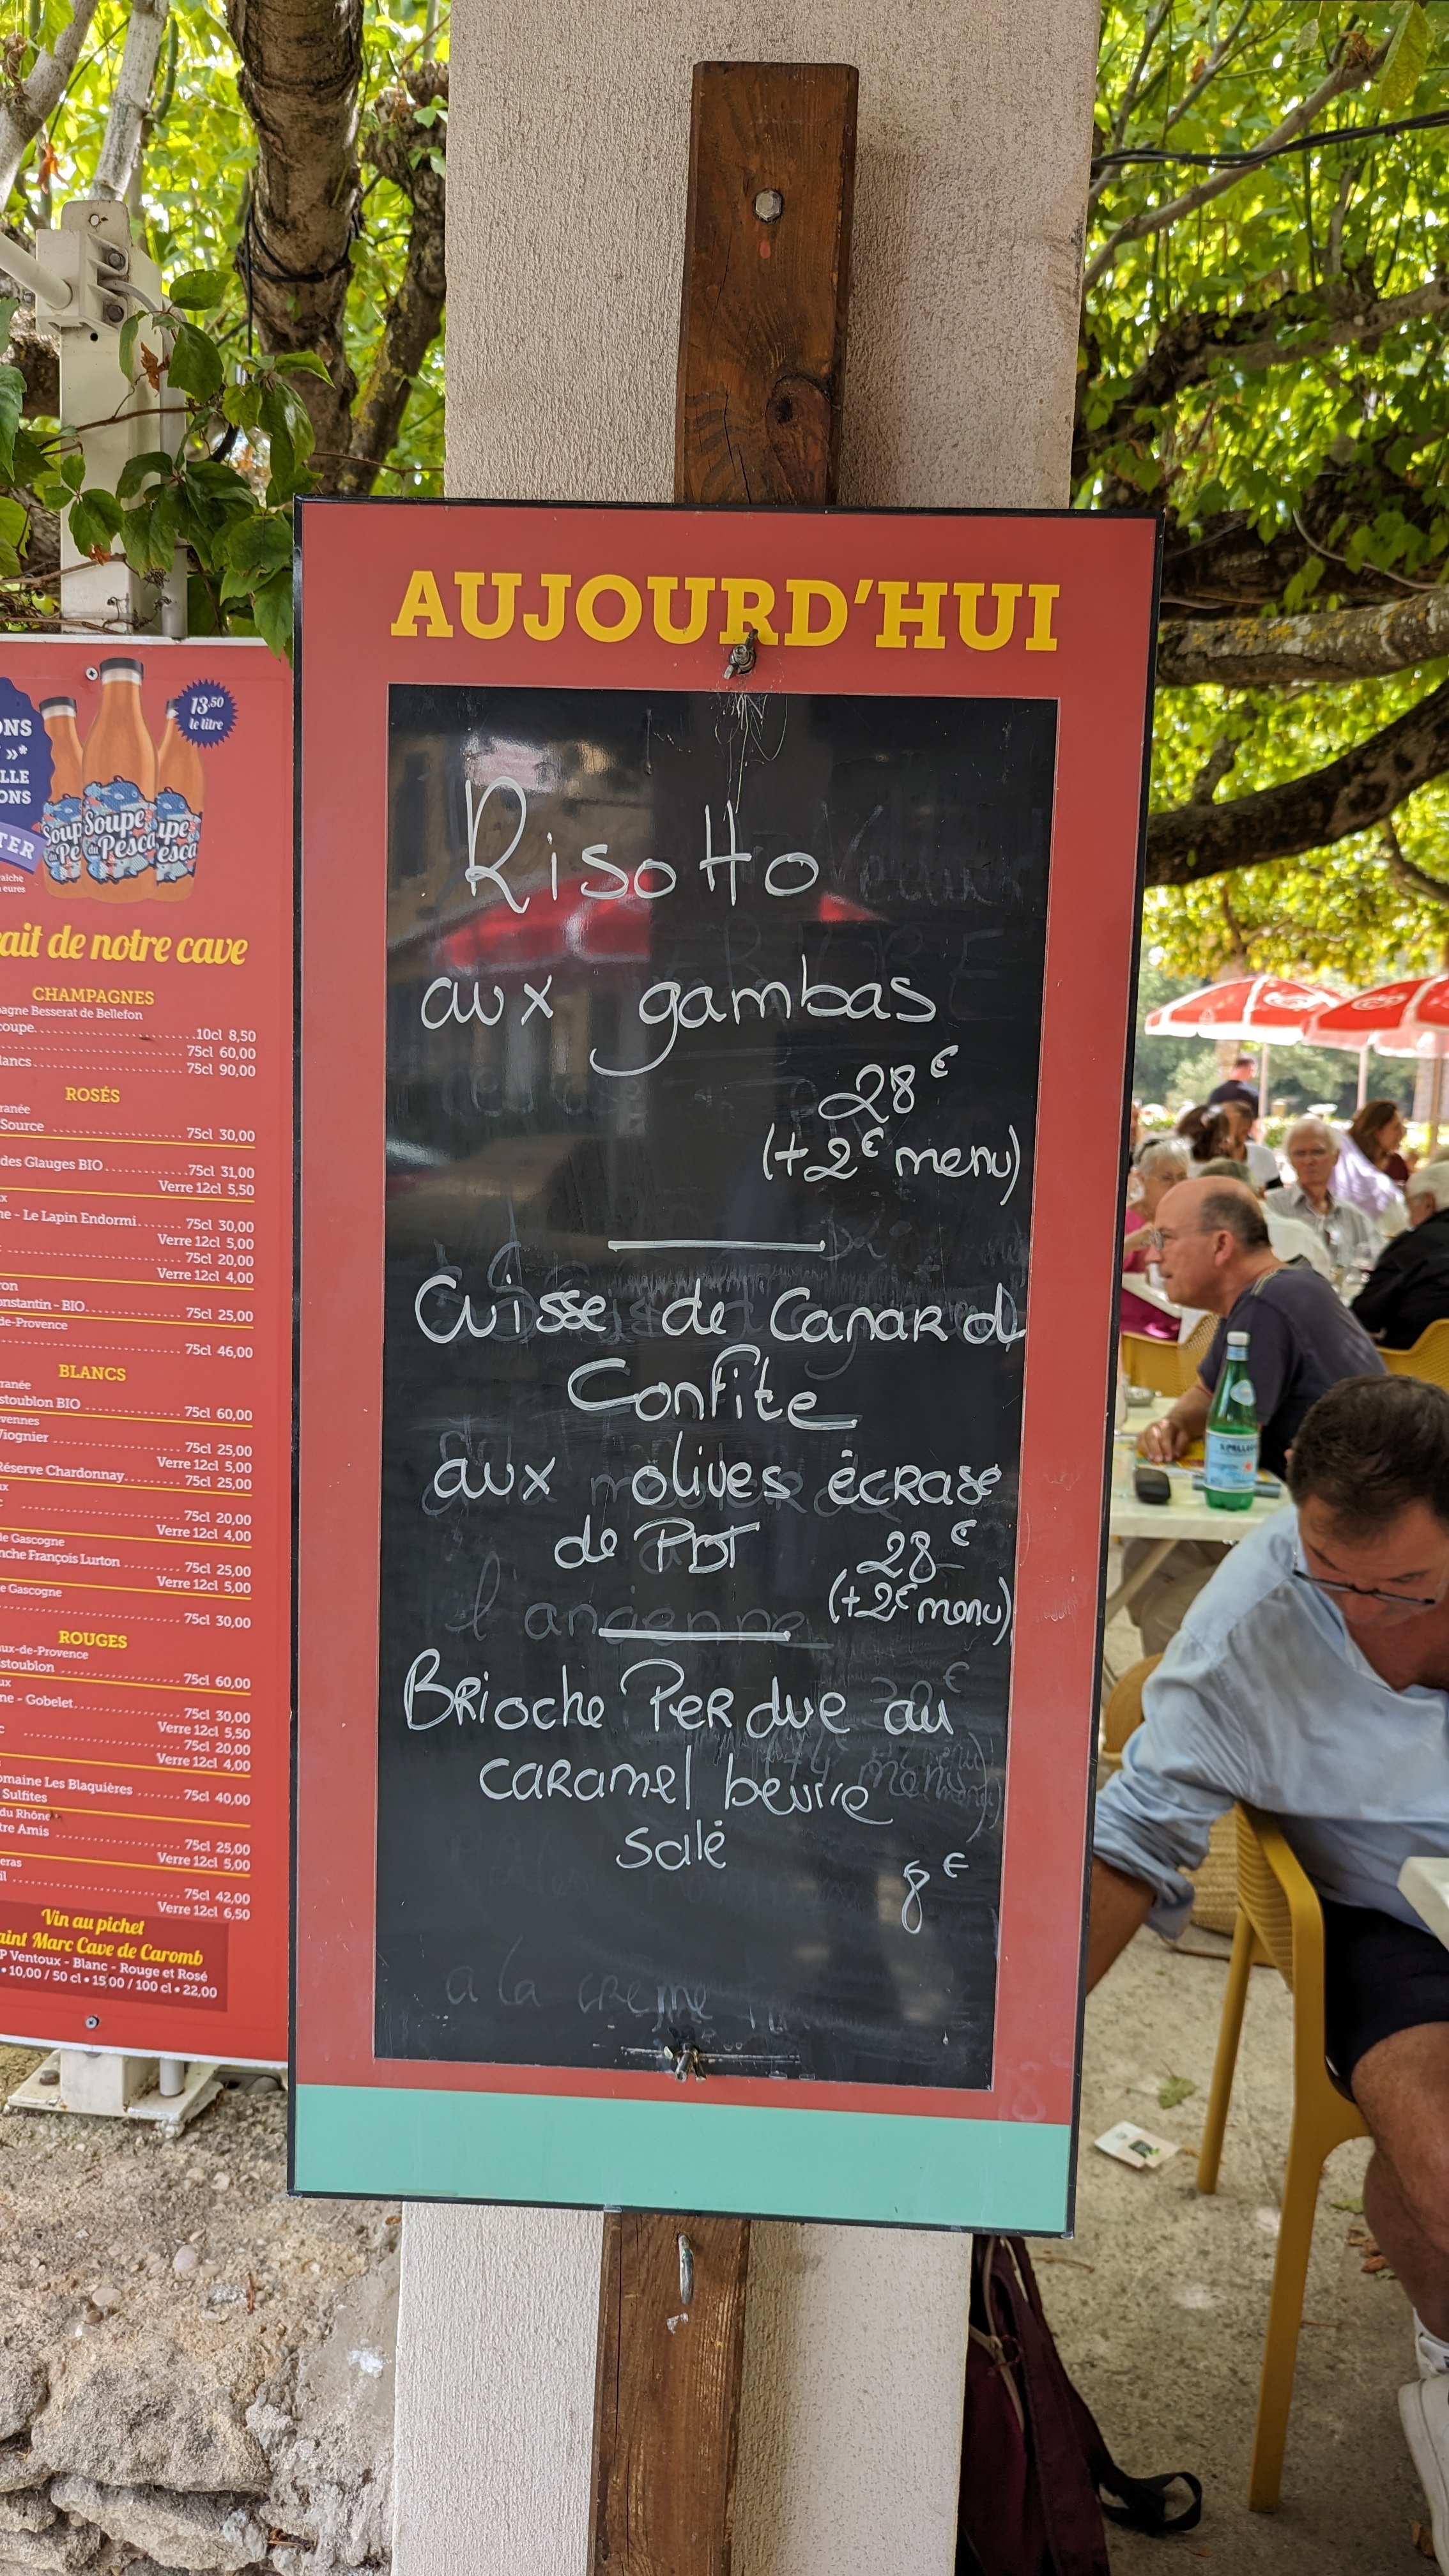 AUJOURD'HUI
Risotto
aux gambas
28€
(+2€ menu)
Cuisse de Canard
Confite
aux olives écrasé
de PDT 28€
(+2€ menu)
l'ancienne
Brioche Perdue au
caramel beurre
salé
8€
a la crème
ONS
»*
LLE
ONS
TER
13,50
le litre
Soupe
du Pesca
ait de notre cave
CHAMPAGNES
pagne Besserat de Bellefon
coupe 10cl 8,50
75cl 60,00
lancs 75cl 90,00
ROSÉS
ranée
Source 75cl 30,00
des Glauges BIO 75cl 31,00
Verre 12cl 5,50
ux
ne - Le Lapin Endormi 75cl 30,00
Verre 12cl 5,00
75cl 20,00
Verre 12cl 4,00
ron
onstantin - BIO 75cl 25,00
de-Provence
75cl 46,00
BLANCS
ranée
stoublon BIO 75cl 60,00
vennes
Viognier 75cl 25,00
Verre 12cl 5,00
Réserve Chardonnay 75cl 25,00
ux
75cl 20,00
Verre 12cl 4,00
de Gascogne
nche François Lurton 75cl 25,00
Verre 12cl 5,00
e Gascogne
75cl 30,00
ROUGES
ux-de-Provence
stoublon 75cl 60,00
ux
ne - Gobelet 75cl 30,00
Verre 12cl 5,50
75cl 20,00
Verre 12cl 4,00
omaine Les Blaquières 75cl 40,00
Sulfites
du Rhône
tre Amis 75cl 25,00
Verre 12cl 5,00
eras
il 75cl 42,00
Verre 12cl 6,50
Vin au pichet
aint Marc Cave de Caromb
P Ventoux - Blanc - Rouge et Rosé
• 10,00 / 50 cl • 15,00 / 100 cl • 22,00
S.PELLE